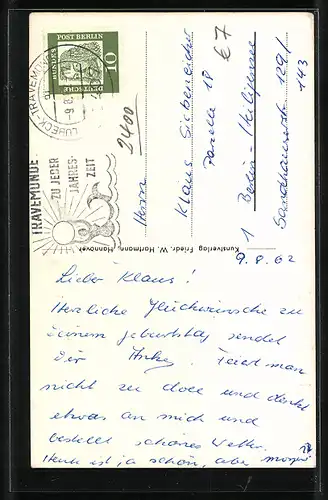 LÜBECK-TRAVEMÜNDE
9.8.
DEUTSCHE BUNDESPOST BERLIN
10
TRAVEMÜNDE
ZU JEDER
JAHRES-
ZEIT
2400
€ 7
Herrn
Klaus
Parzelle 18
1 Berlin-Heiligensee
Sandhauser 129/
143
Kunstverlag Friedr. W. Hartmann, Hannover
9.8.62
Lieber Klaus!
Herzliche Glückwünsche zu
Deinem Geburtstag sendet
Dir Anke. Feiert man
nicht zu doll und denkt
etwas an mich und
bestellt schönes Wetter.
Heute ist ja schön, aber morgen?